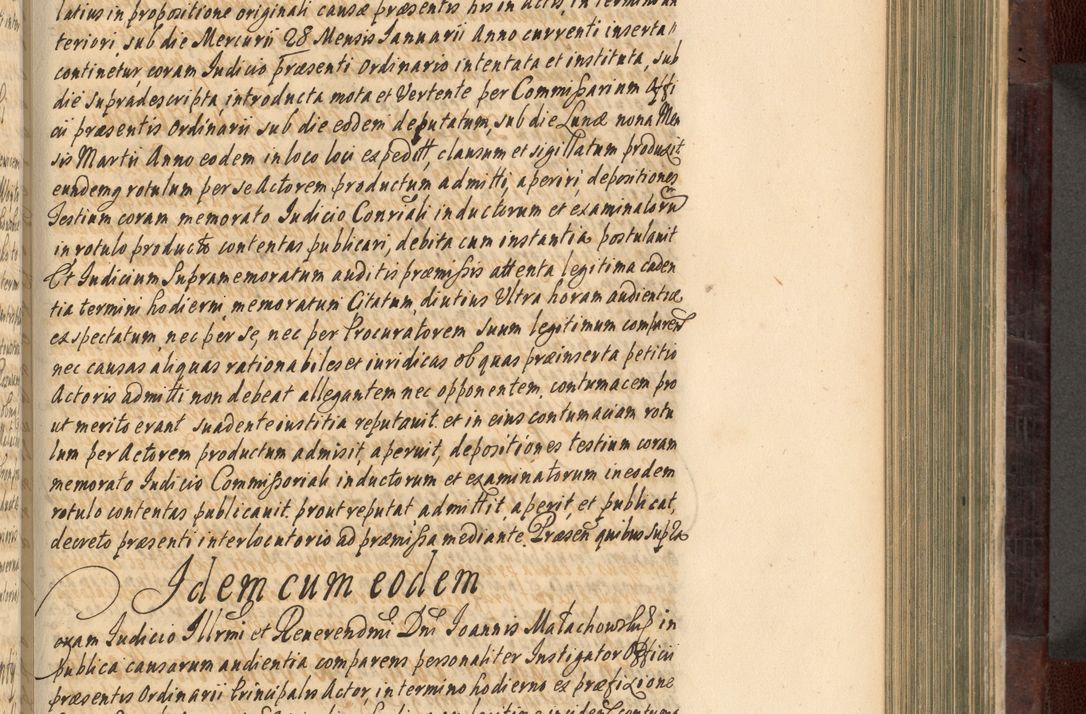 latius in propositione originali causæ præsentis his in actis, in termino an
teriori, sub die Mercurii 28 Mensis Ianuarii Anno currenti inserta
continetur, coram Iudicio præsenti Ordinario intentata et instituta, sub
die supradescripta, introducta mota et Vertente per Commissarium Offi
cii præsentis Ordinarii sub die eodem deputatum, sub die Lunæ nona Men
sis Martii Anno eodem in loco loci expeditt, clausum et sigillatum produxit
eundemq rotulum per se Actorem productum admitti, aperiri depositiones
Testium coram memorato Iudicio Conriali inductorum et examinatorū
in rotulo producto contentas publicari, debita cum instantia postulavit
Et Iudicium Supramemoratum auditis præmissis attenta legitima caden
tia termini hodierni, memoratum Citatum, diutius Ultra horam audientiæ
expectatum, nec per se, nec per Procuratorem suum legitimum comparen
nec causas aliquas rationabiles et iuridicas ob quas præinserta petitio
Actoris admitti non debeat allegantem nec opponentem, contumacem pro
ut merito erant suadente iustitia reputavit. et in eius contumaciam rotu
lum per Actorem productum admisit, aperuit, depositiones testium coram
memorato Iudicio Commissoriali inductorum et examinatorum in eodem
rotulo contentas publicavit, prout reputat admittit, aperit, et publicat,
decreto præsenti interlocutorio ad præmissa mediante. Præsen quibus supra
Idem cum eodem
coram Iudicio Illrmi et Reverendmi Dni Ioannis Małachowski in
publica causarum audientia comparens personaliter Instigator Officii
præsentis Ordinarii Principalis Actor, in termino hodierno ex præfixione